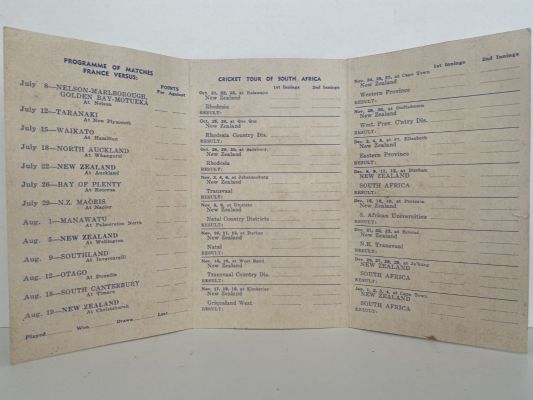 PROGRAMME OF MATCHES
FRANCE VERSUS:
POINTS
For Against
July 8—NELSON-MARLBOROUGH,
GOLDEN BAY-MOTUEKA
At Nelson
July 12—TARANAKI
At New Plymouth
July 15—WAIKATO
At Hamilton
July 18—NORTH AUCKLAND
At Whangarei
July 22—NEW ZEALAND
At Auckland
July 26—BAY OF PLENTY
At Rotorua
July 29—N.Z. MAORIS
At Napier
Aug. 1—MANAWATU
At Palmerston North
Aug. 5—NEW ZEALAND
At Wellington
Aug. 9—SOUTHLAND
At Invercargill
Aug. 12—OTAGO
At Dunedin
Aug. 16—SOUTH CANTERBURY
At Timaru
Aug. 19—NEW ZEALAND
At Christchurch
Played Won Drawn Lost
CRICKET TOUR OF SOUTH AFRICA
1st Innings 2nd Innings
New Zealand
Rhodesia
RESULT:
New Zealand
Rhodesia Country Dis.
RESULT:
New Zealand
Rhodesia
RESULT:
Nov. 3, 4, 6, at Johannesburg
New Zealand
Transvaal
RESULT:
New Zealand
Natal Country Districts
RESULT:
New Zealand
Natal
RESULT:
New Zealand
Transvaal Country Dis.
RESULT:
Nov. 17, 18, 20, at Kimberley
New Zealand
Griqualand West
RESULT:
1st Innings 2nd Innings
Nov. 24, 25, 27, at Cape Town
New Zealand
Western Province
RESULT:
New Zealand
West. Prov. Cntry Dis.
RESULT:
New Zealand
Eastern Province
RESULT:
NEW ZEALAND
SOUTH AFRICA
RESULT:
New Zealand
S. African Universities
RESULT:
New Zealand
N.E. Transvaal
RESULT:
NEW ZEALAND
SOUTH AFRICA
RESULT:
Jan. 1, 2, 3, 4, at Cape Town
NEW ZEALAND
SOUTH AFRICA
RESULT: